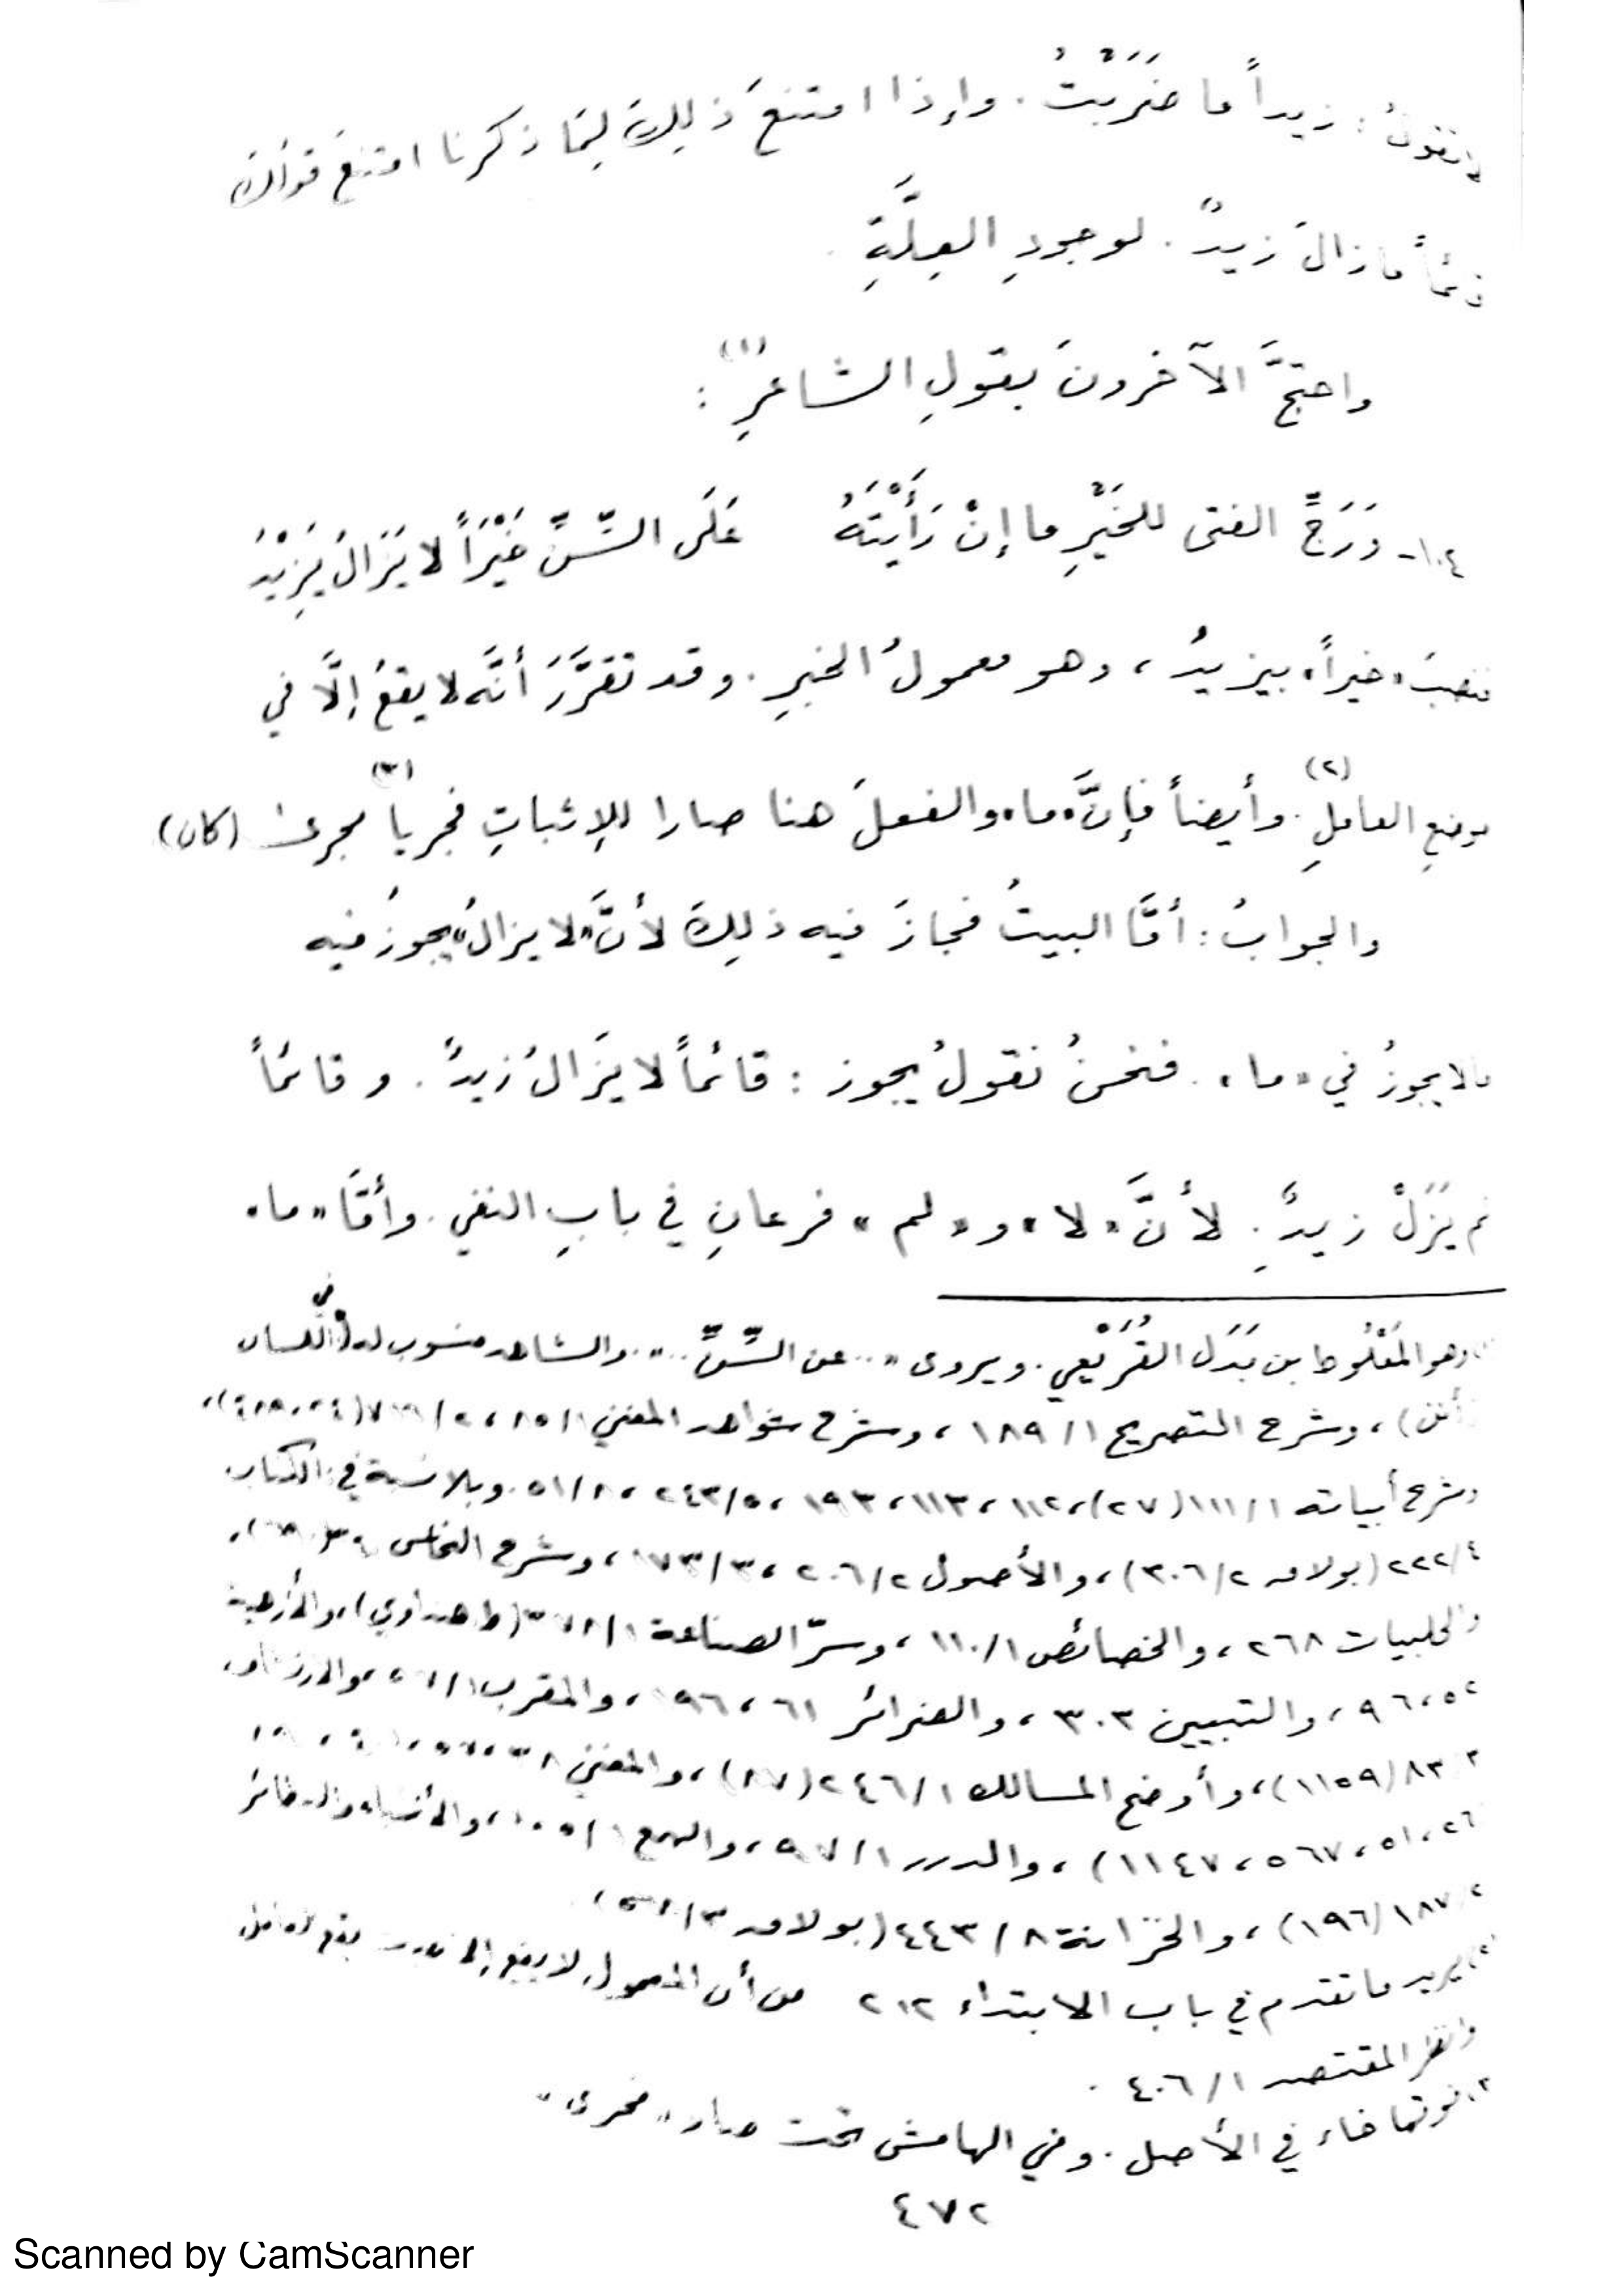 لا تقولُ : زيداً ما ضَرَبْتُ . وإذا امتنعَ ذلِكَ لِمَا ذكرنا امتنعَ قولُكَ
قائماً مازالَ زيدٌ . لوجودِ العِلَّةِ .
واحتجَّ الآخرونَ بقولِ الشاعرِ (١) :
١٠٤ـ وَرَجِّ الفتى للخَيْرِ ما إنْ رَأَيْتَهُ عَلَى السِّنِّ خَيْرَاً لا يَزَالُ يَزِيْدُ
فنصبَ « خيراً » بيزيدُ ، وهو معمولُ الخبرِ . وقد تقرَّرَ أنَّه لا يقعُ إلَّا في
موضعِ العاملِ (٢) . وأيضاً فإنَّ « ما » والفعلَ هنا صارا للإثباتِ فجريا (٣) مجرى (كان)
والجوابُ : أمَّا البيتُ فجازَ فيه ذلِكَ لأنَّ « لا يزالُ » يجوزُ فيه
ما لا يجوزُ في « ما » . فنحنُ نقولُ يجوز : قائماً لا يَزَالُ زيدٌ . وقائماً
لم يَزَلْ زيدٌ . لأنَّ « لا » و « لم » فرعانِ في بابِ النفي . وأمَّا « ما »
وهو المَعْلُوط بن بَدَل القُرَيْعي . ويروى « .. عن السِّنِّ .. » . والشاهد منسوب له في اللسان
(أنن) ، وشرح التصريح ١/ ١٨٩ ، وشرح شواهد المغني ١/ ٨٥ ، ٢/
وشرح أبياته ١/ ١١١ (٢٧) ، ١١٢ ، ١١٣ ، ١٩٣ ، ٥/ ٢٤٣ ، ٨/ ٥١ . وبلا نسبة في : الكتاب
٤/ ٢٢٢ (بولاق ٢/ ٣٠٦) ، والأصول ٢/ ٢٠٦ ، ٣/ ١٧٣ ، وشرح النحاس
والحلبيات ٢٦٨ ، والخصائص ١/ ١١٠ ، وسرّ الصناعة ١/ (ط هنداوي) ، والأزهية
٥٢ ، ٩٦ ، والتبيين ٣٠٣ ، والضرائر ٦١ ، ١٩٦ ، والمقرب ١/
٨٣ (١١٥٩) ، وأوضح المسالك ١/ ٢٤٦ (٨٧) ، والمغني
٢٦ ، ٥١ ، ٥٦٧ ، ١١٤٧) ، والدرر ١/ ٩٧ ، والهمع ١/ ، والأشباه والنظائر
١٨٧ (١٩٦) ، والخزانة ٨/ ٤٤٣ (بولاق ٣/
يريد ما تقدم في باب الابتداء ٢١٢ من أن المعمول لا يقع إلا يقع العامل
وانظر المقتصد ١/ ٤٠٦ .
فوقها خاء في الأصل . وفي الهامش تحت صار « مجرى »
٤٧٢
Scanned by CamScanner